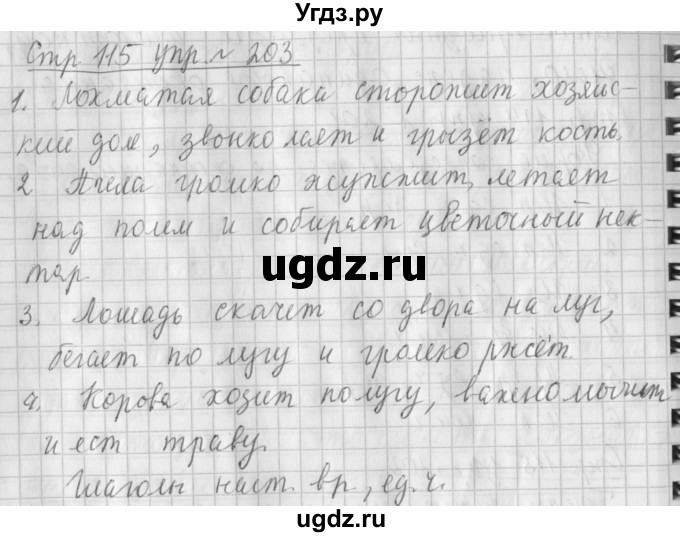 Угдз.ру
Стр 115 упр № 203
1. Лохматая собака сторопит хозяйс-
кий дом, звонко лает и грызёт кость.
2 Пчела громко жужжит, летает
над полем и собирает цветочный нек-
тар.
ugdz.ru
3. Лошадь скачет со двора на луг,
бегает по лугу и громко ржёт.
4. Корова ходит по лугу, важно мычит
и ест траву.
Глаголы наст. вр, ед. ч.
ugdz.ru